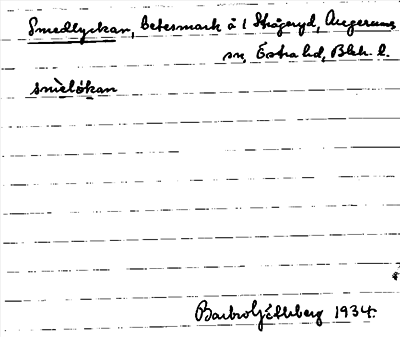 Smedlyckan, betesmark å 1 Skågeryd, Augerums
sn, Östra hd, Blek. l.
smèlökan
Barbro Göthberg 1934.